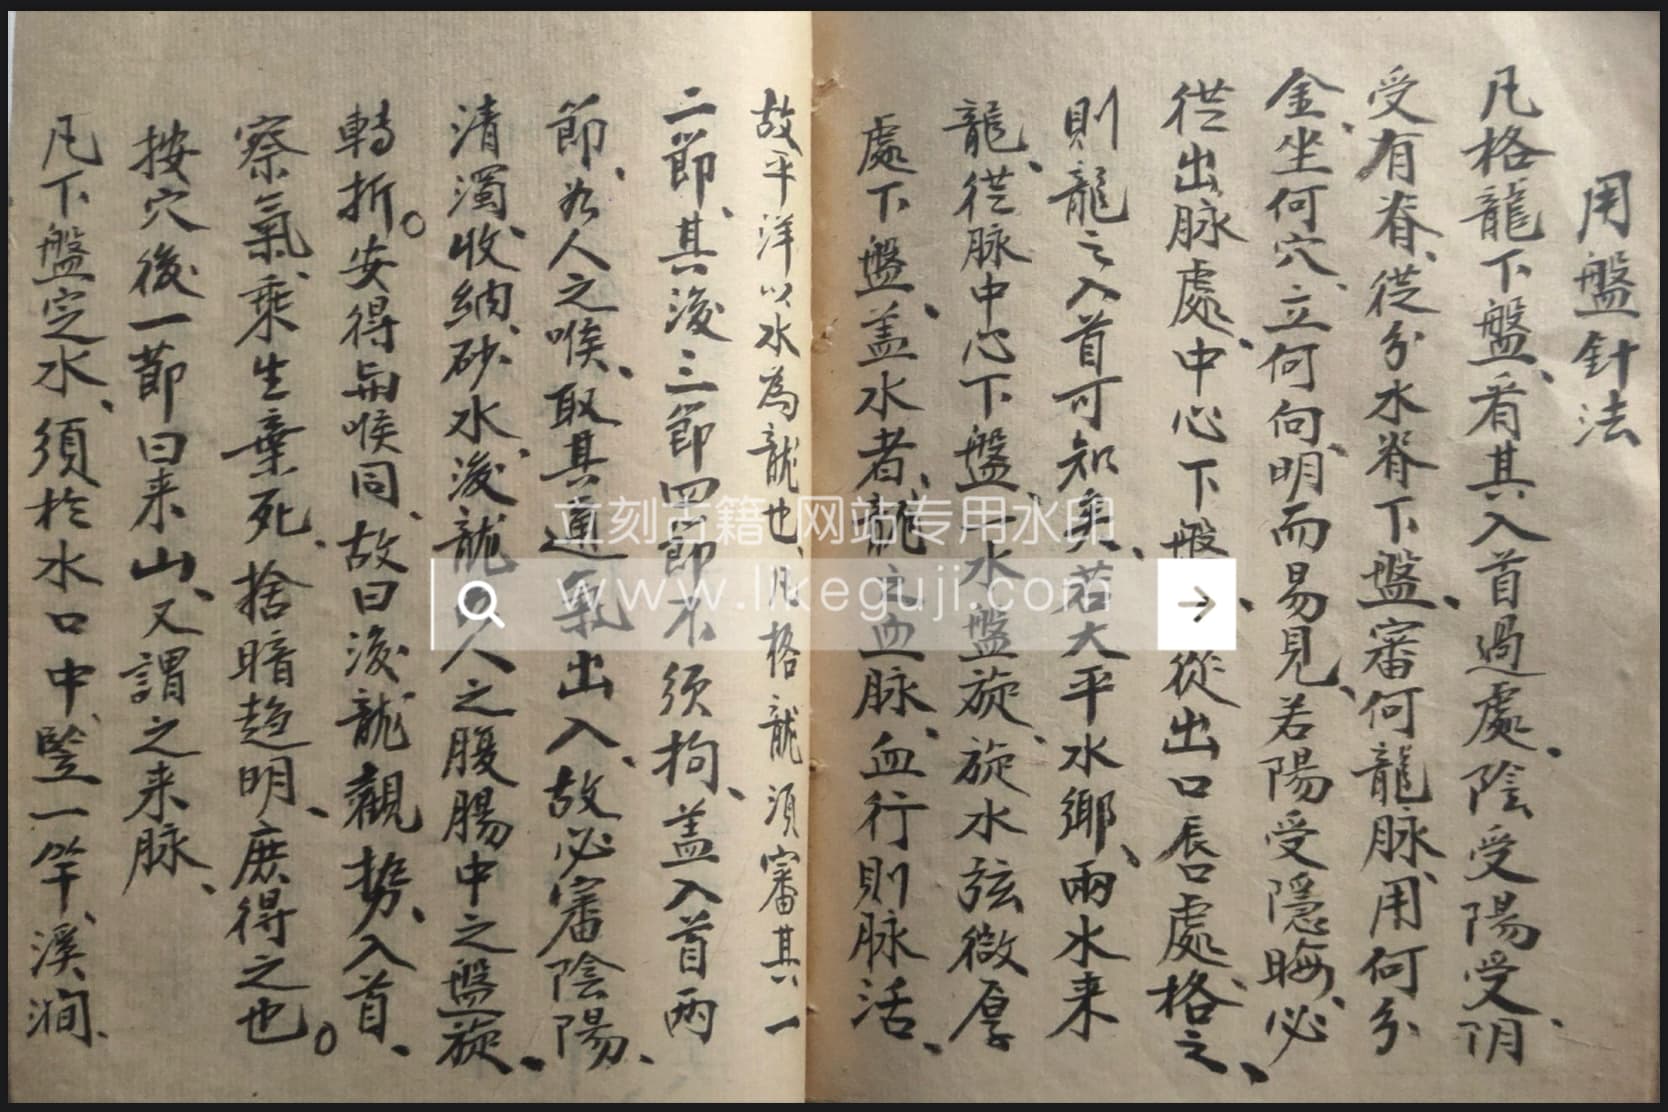 用盤針法
凡格龍下盤、看其入首過處、陰受陽受、阴
受有脊、從分水脊下盤、審何龍脉、用何分
金、坐何穴、立何向、明而易見、若陽受隱晦、必
從出脉處、中心下盤、從出口唇處格之、
則龍之入首可知矣、若大平水鄉、兩水来
龍、從脉中心下盤、水盤旋、旋水弦微厚
處下盤、盖水者、龍之血脉、血行則脉活、
故平洋以水為龍也、凡格龍須審其一
二節、其後三節四節不須拘、盖入首两
節、如人之喉、取其通氣出入、故必審陰陽、
清濁、收納、砂水、後龍人之腹腸中之盤旋、
轉折。安得與喉同、故曰後龍觀势、入首、
察氣、乘生棄死、捨暗趋明、庶得之也。
按穴後一節曰来山、又謂之来脉、
凡下盤定水、須於水口中、竪一竿、溪澗、
立刻古籍 网站专用水印
www.likeguji.com